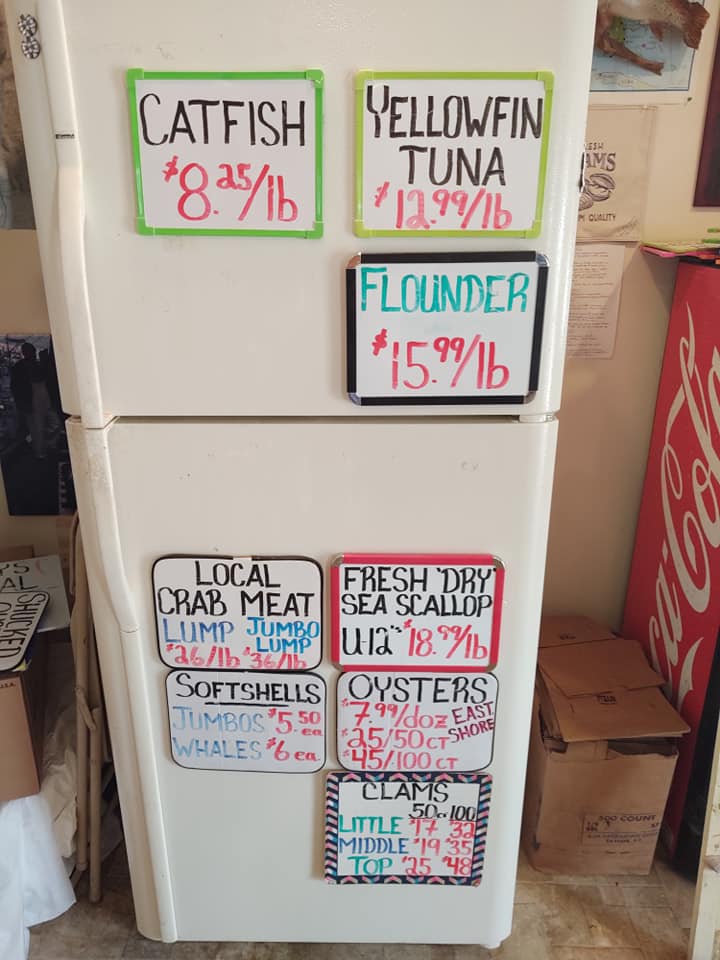 CATFISH
$8.25/lb
YELLOWFIN
TUNA
$12.99/lb
FLOUNDER
$15.99/lb
LOCAL
CRAB MEAT
LUMP JUMBO LUMP
$26/lb $36/lb
FRESH 'DRY'
SEA SCALLOP
U-12" $18.99/lb
SOFTSHELLS
JUMBOS $5.50 ea
WHALES $6 ea
OYSTERS
$7.99/doz EAST
$25/50 CT SHORE
$45/100 CT
CLAMS
50 or 100
LITTLE $17 $32
MIDDLE $19 $35
TOP $25 $48
QUALITY
SHUCKED
Coca-Cola
500 COUNT